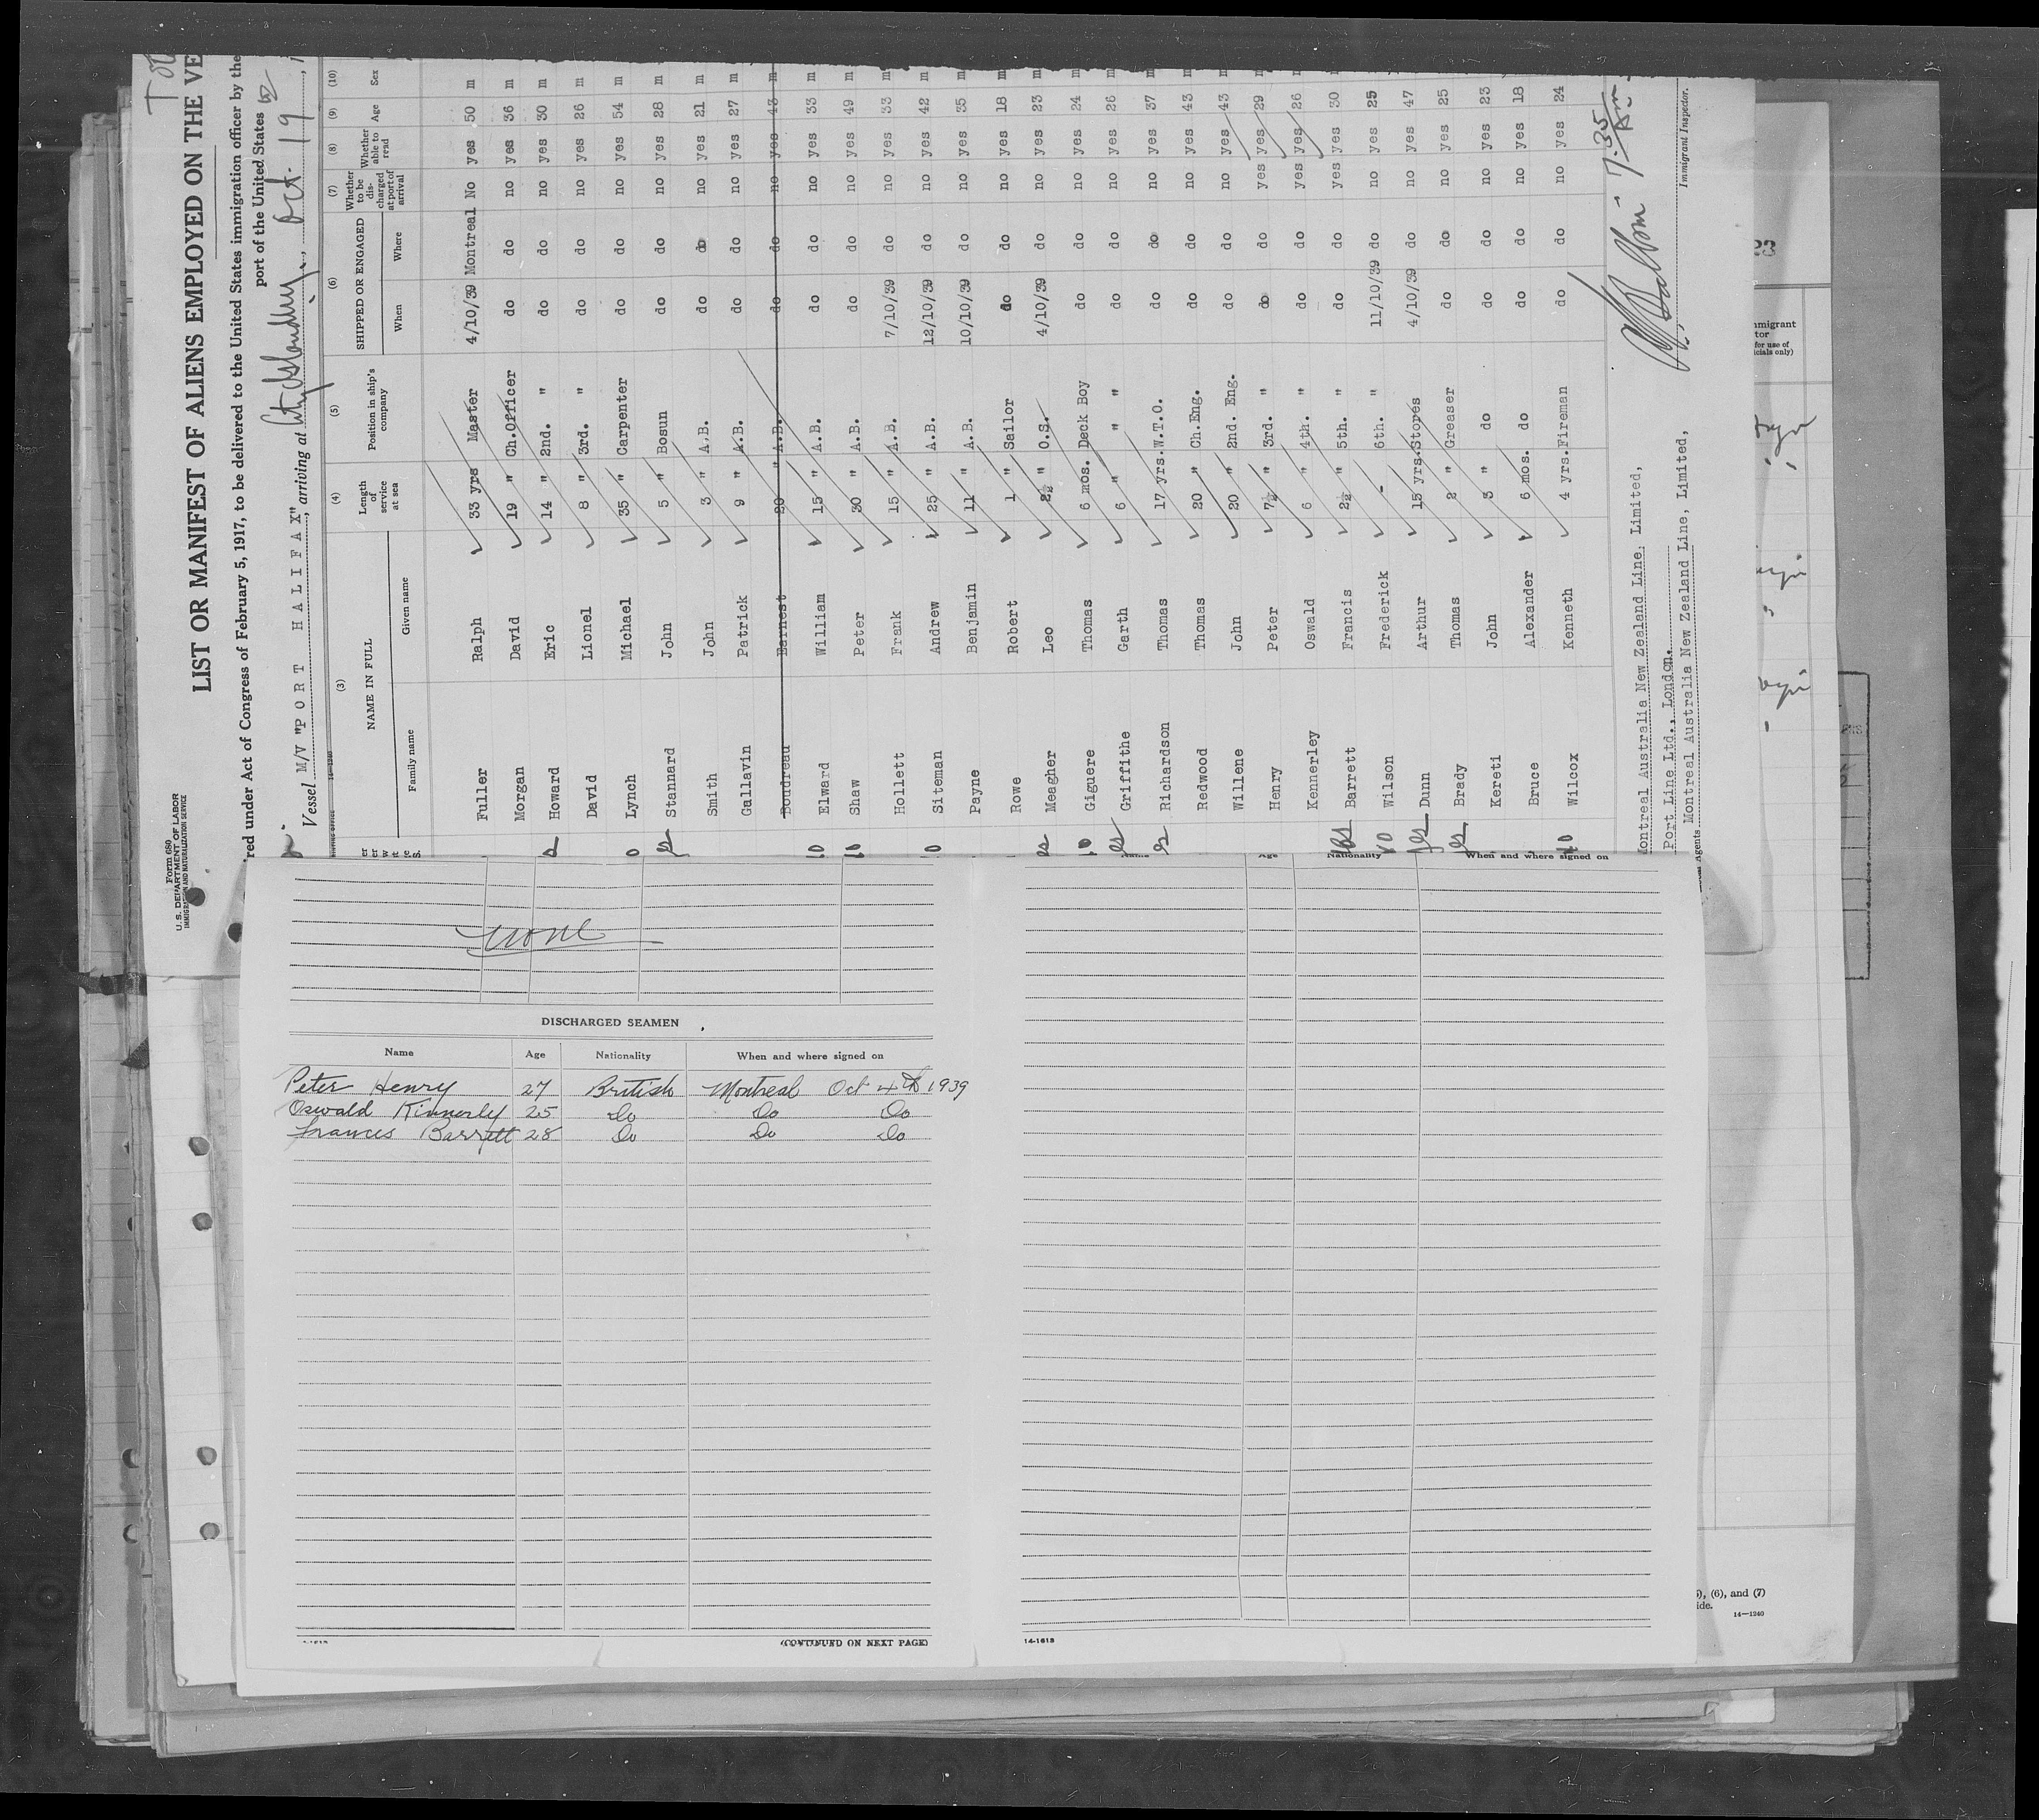 Form 680
U. S. DEPARTMENT OF LABOR
IMMIGRATION AND NATURALIZATION SERVICE
LIST OR MANIFEST OF ALIENS EMPLOYED ON THE VE
red under Act of Congress of February 5, 1917, to be delivered to the United States immigration officer by the
port of the United States
Vessel M/V "PORT HALIFAX", arriving at Oct. 19
(3) (4) (5) (6) (7) (8) (9) (10)
NAME IN FULL
Family name Given name
Length of service at sea
Position in ship's company
SHIPPED OR ENGAGED
When Where
Whether to be discharged at port of arrival
Whether able to read
Age
Sex
Fuller Ralph 33 yrs Master 4/10/39 Montreal No yes 50 m
Morgan David 19 " Ch.Officer do do no yes 36 m
Howard Eric 14 " 2nd. " do do no yes 30 m
David Lionel 8 " 3rd. " do do no yes 26 m
Lynch Michael 35 " Carpenter do do no yes 54 m
Stannard John 5 " Bosun do do no yes 28 m
Smith John 3 " A.B. do do no yes 21 m
Gallavin Patrick 9 " A.B. do do no yes 27 m
Boudreau Earnest 20 " A.B. do do no yes 43 m
Elward William 15 " A.B. do do no yes 33 m
Shaw Peter 30 " A.B. do do no yes 49 m
Hollett Frank 15 " A.B. 7/10/39 do no yes 33 m
Siteman Andrew 25 " A.B. 12/10/39 do no yes 42 m
Payne Benjamin 11 " A.B. 10/10/39 do no yes 35 m
Rowe Robert 1 " Sailor do do no yes 18 m
Meagher Leo 2½ " O.S. 4/10/39 do no yes 23 m
Giguere Thomas 6 mos. Deck Boy do do no yes 24 m
Griffithe Garth 6 " " do do no yes 26 m
Richardson Thomas 17 yrs. W.T.O. do do no yes 37 m
Redwood Thomas 20 " Ch.Eng. do do no yes 43 m
Willene John 20 " 2nd. Eng. do do no yes 43 m
Henry Peter 7½ " 3rd. " do do yes yes 29 m
Kennerley Oswald 6 " 4th. " do do yes yes 26 m
Barrett Francis 2½ " 5th. " do do yes yes 30
Wilson Frederick - 6th. " 11/10/39 do no yes 25
Dunn Arthur 15 yrs. Stores 4/10/39 do no yes 47
Brady Thomas 2 " Greaser do do no yes 25
Kereti John 3 " do do do no yes 23
Bruce Alexander 6 mos. do do do no yes 18
Wilcox Kenneth 4 yrs. Fireman do do no yes 24
7.35
Montreal Australia New Zealand Line, Limited,
Port Line Ltd., London.
Agents Montreal Australia New Zealand Line, Limited,
Immigrant Inspector.
23
mmigrant
tor
for use of
icials only)
none
DISCHARGED SEAMEN
Name Age Nationality When and where signed on
Peter Henry 27 British Montreal Oct 4th 1939
Oswald Kinnerly 25 Do Do Do
Frances Barrett 28 Do Do Do
(CONTINUED ON NEXT PAGE)
Name Age Nationality When and where signed on
14-1613
), (6), and (7)
ide.
14—1240